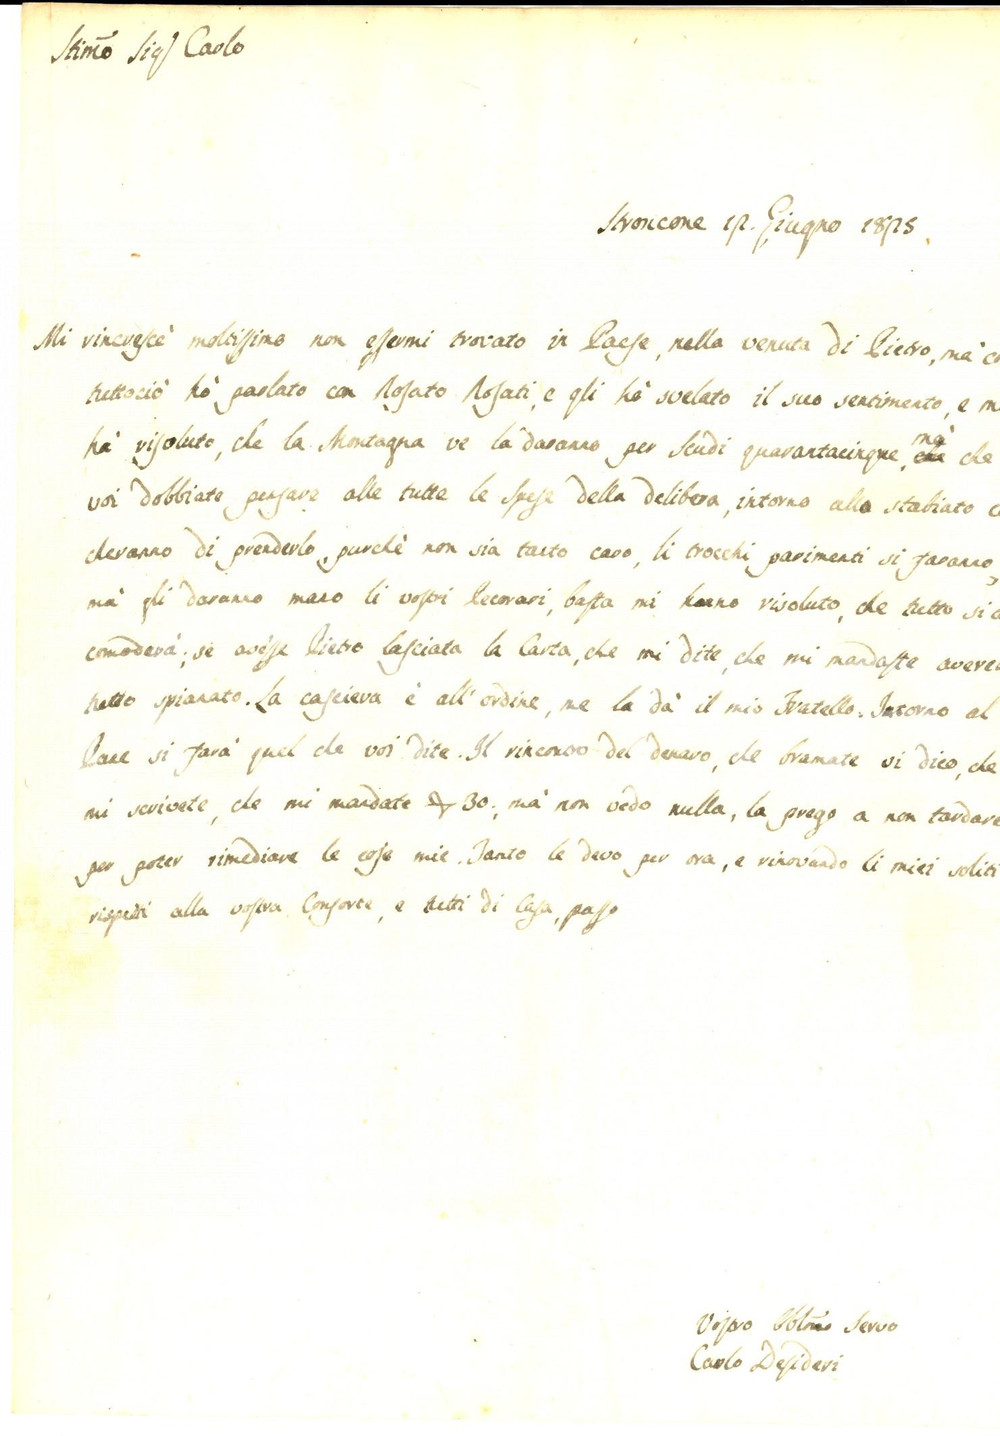 Stimo Sigr Carlo
Stroncone 12. Giugno 1825
Mi rincresce moltissimo non essermi trovato in Paese, nella venuta di Pietro, mà
tuttociò hò parlato con Rosato Rosati, e gli hà svelato il suo sentimento, e
hà risoluto, che la Montagna ve la daranno per Scudi quarantacinque, mà che
voi dobbiate pensare alle tutte le spese della delibera, intorno allo stabiato
cheranno di prenderlo, purchè non sia tanto caro, li trocchi parimenti si faranno,
mà gli daranno mano li vostri Pecorari, basta mi hanno risoluto, che tutto si
comoderà; se avesse Pietro lasciata la Carta, che mi dite, che mi mandaste
tutto spianato. La casciera è all'ordine, me la dà il mio Fratello. Intorno al
Pane si farà quel che voi dite. Il rincondo del denaro, che bramate vi dico, che
mi scrivete, che mi mandate 30; mà non vedo nulla, la prego a non tardare
per poter rimediare le cose mie. Tanto le devo per ora, e rinovando li miei soliti
rispetti alla vostra Consorte, e tutti di Casa, passo
Vostro Obbmo Servo
Carlo Desideri